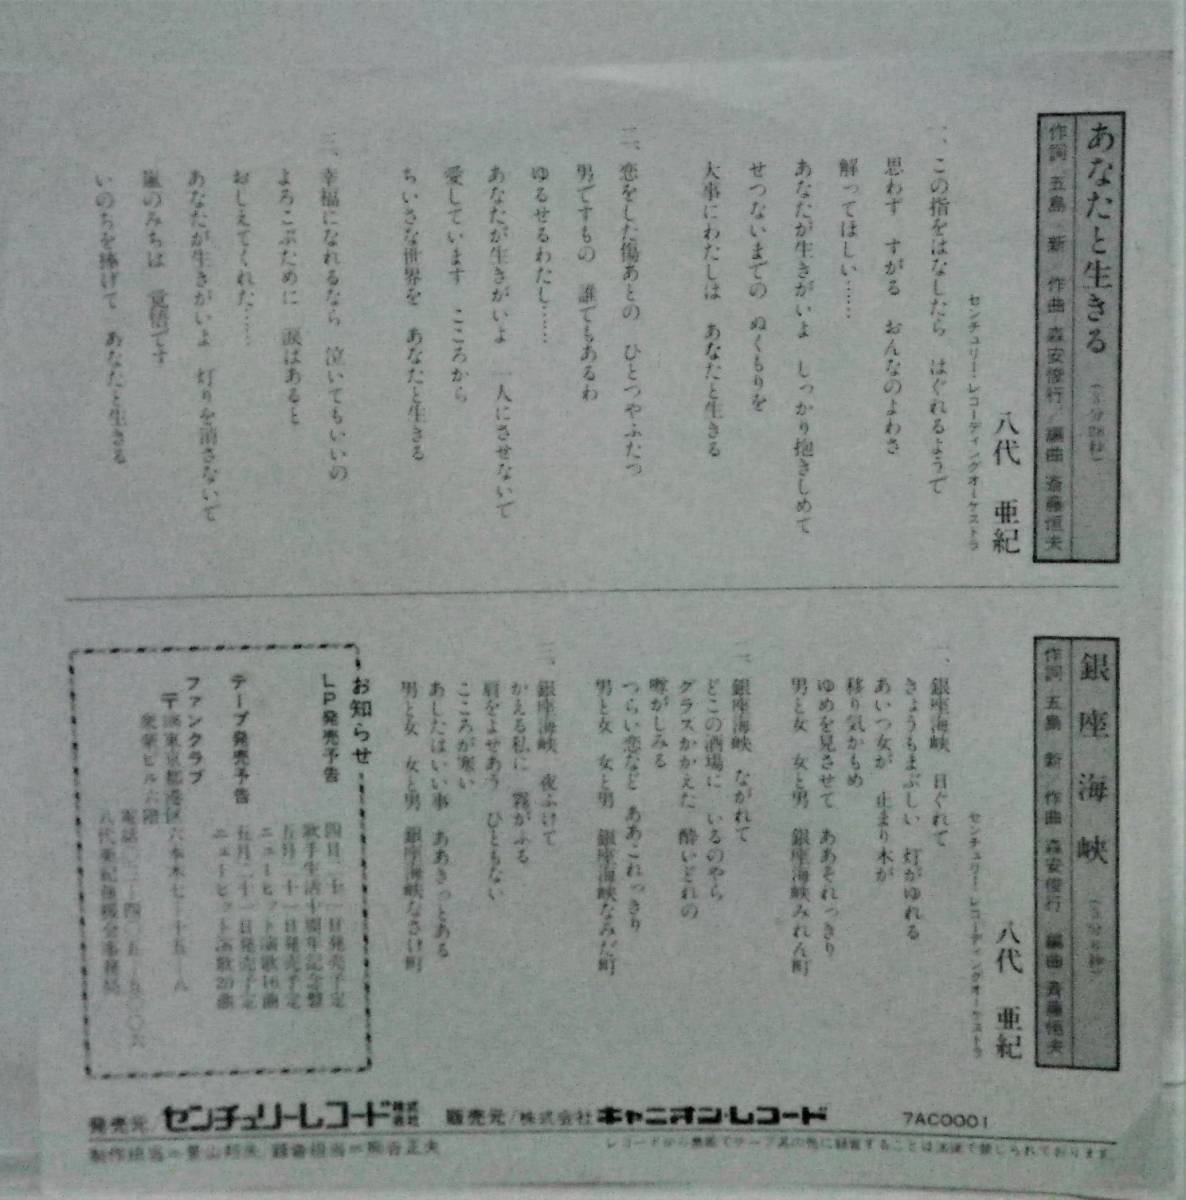 あなたと生きる
作詞 五島 新 作曲 森安俊行/編曲 斎藤恒夫
八代 亜紀
センチュリー・レコーディングオーケストラ
一、この指をはなしたら はぐれるようで
思わず すがる おんなのよわさ
解ってほしい……
あなたが生きがいよ しっかり抱きしめて
せつないまでの ぬくもりを
大事にわたしは あなたと生きる
二、恋をした傷あとの ひとつやふたつ
男ですもの 誰でもあるわ
ゆるせるわたし……
あなたが生きがいよ 一人にさせないで
愛しています こころから
ちいさな世界を あなたと生きる
三、幸福になれるなら 泣いてもいいの
よろこぶために 涙はあると
おしえてくれた……
あなたが生きがいよ 灯りを消さないで
嵐のみちは 覚悟です
いのちを捧げて あなたと生きる
銀座海峡
作詞 五島 新/作曲 森安俊行 編曲 斉藤恒夫
八代 亜紀
センチュリー・レコーディングオーケストラ
一、銀座海峡 日ぐれて
きょうもまぶしい 灯がゆれる
あいつ女が 止まり木が
移り気かもめ
ゆめを見させて ああそれっきり
男と女 女と男 銀座海峡みれん町
二、銀座海峡 ながれて
どこの酒場に いるのやら
グラスかかえた 酔いどれの
噂がしみる
つらい恋など ああこれっきり
男と女 女と男 銀座海峡なみだ町
三、銀座海峡 夜ふけて
かえる私に 霧がふる
肩をよせあう ひともない
こころが寒い
あしたはいい事 ああきっとある
男と女 女と男 銀座海峡なさけ町
お知らせ
LP発売予告
四月二十一日発売予定
歌手生活十周年記念盤
テープ発売予告
五月二十一日発売予定
ニューヒット演歌16曲
五月二十一日発売予定
ニューヒット演歌20曲
ファンクラブ
〒 東京都港区六本木七-十五-八
ビル六階
電話〇三-四〇五-五〇〇六
八代亜紀後援会事務局
発売元/センチュリーレコード株式会社 販売元/株式会社キャニオン・レコード 7AC0001
レコードから無断でテープ其の他に録音することは法律で禁じられております。